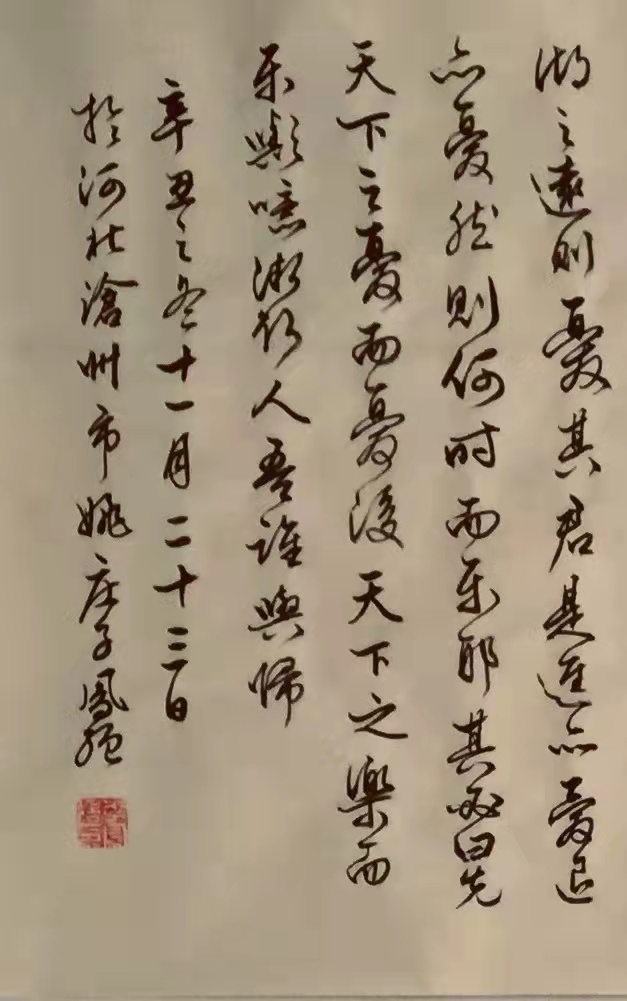 湖之遠则憂其君是進亦憂退
亦憂然则何时而乐耶其必曰先
天下之憂而憂後天下之樂而
乐歟噫微斯人吾誰與歸
辛丑之冬十一月二十三日
於河北滄州市姚庄子鳳